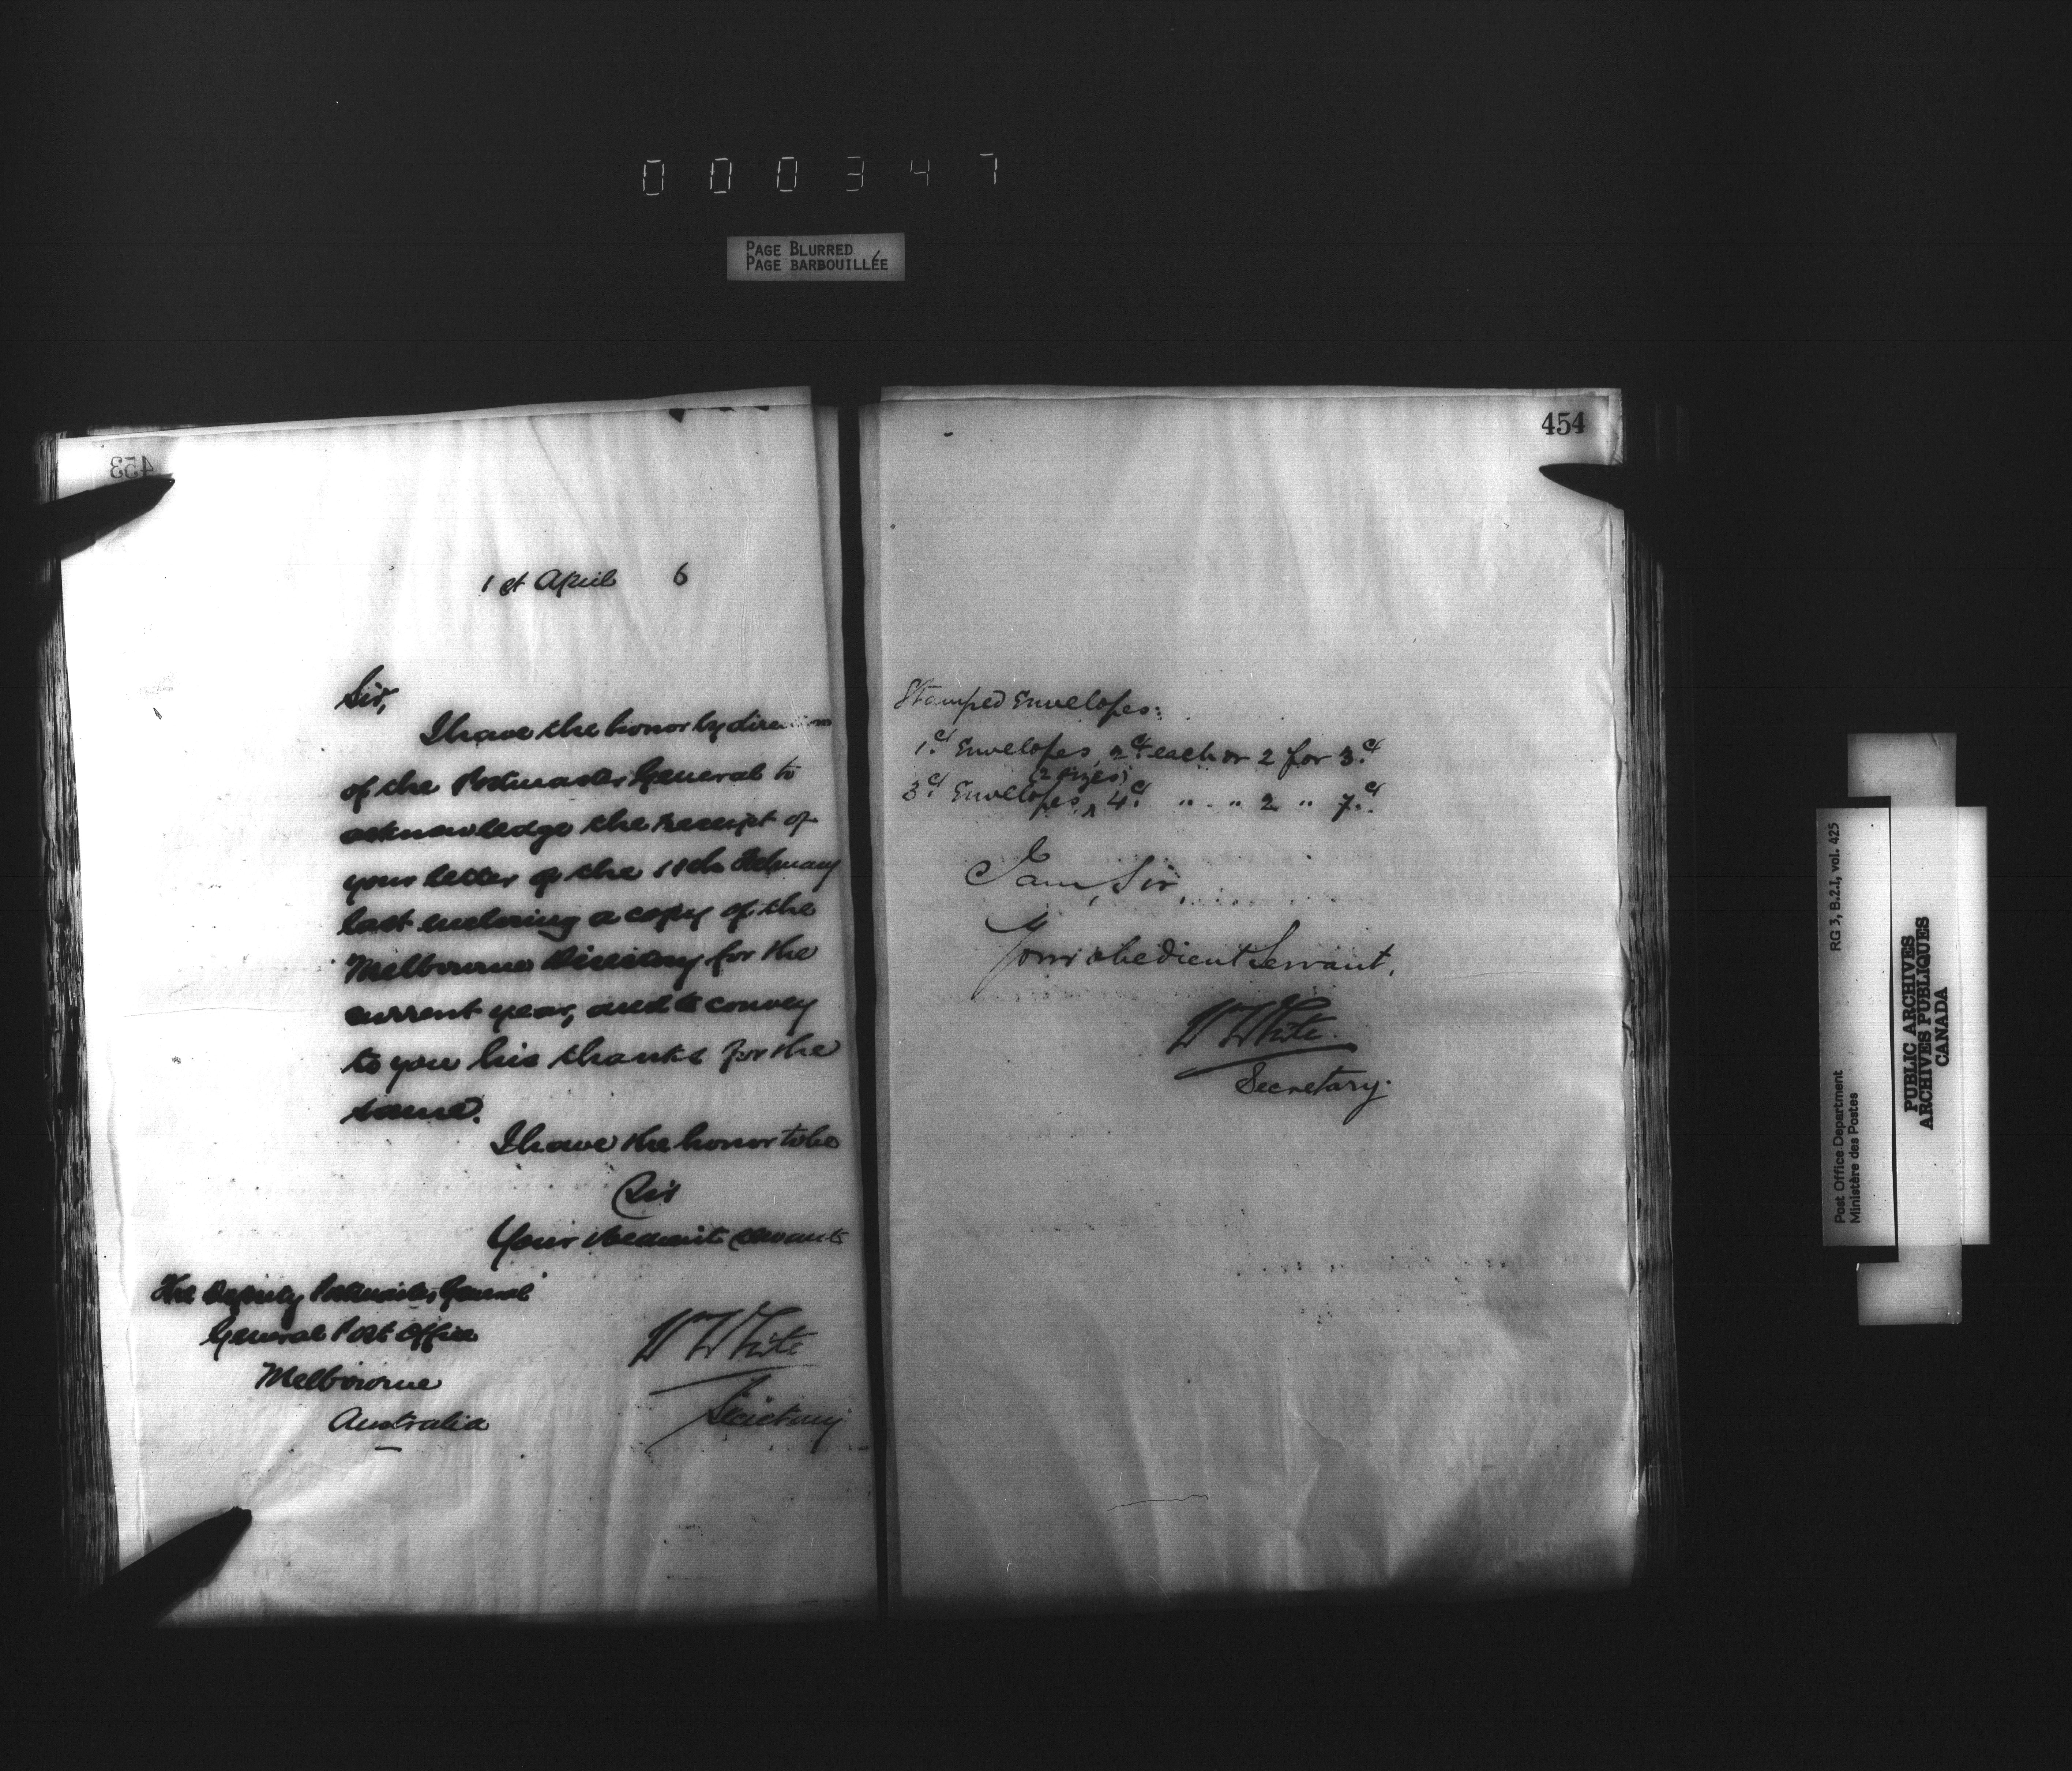 000347
PAGE BLURRED
PAGE BARBOUILLÉE
453
1st April 6
Sir,
I have the honor by direction
of the Postmaster General to
acknowledge the receipt of
your letter of the February
last enclosing a copy of the
Melbourne Directory for the
current year, and to convey
to you his thanks for the
same.
I have the honor to be
Sir
Your obedient servant
Wm White
Secretary
The Deputy Postmaster General
General Post Office
Melbourne
Australia
454
Stamped Envelopes:
1ct Envelopes, 2ct each or 2 for 3ct
(2 sizes)
3ct Envelopes, ^ 4ct " . " 2 " 7ct.
I am, Sir,
Your obedient Servant,
Wm White.
Secretary.
Post Office Department
Ministère des Postes
RG 3, B.2.I, vol. 425
PUBLIC ARCHIVES
ARCHIVES PUBLIQUES
CANADA